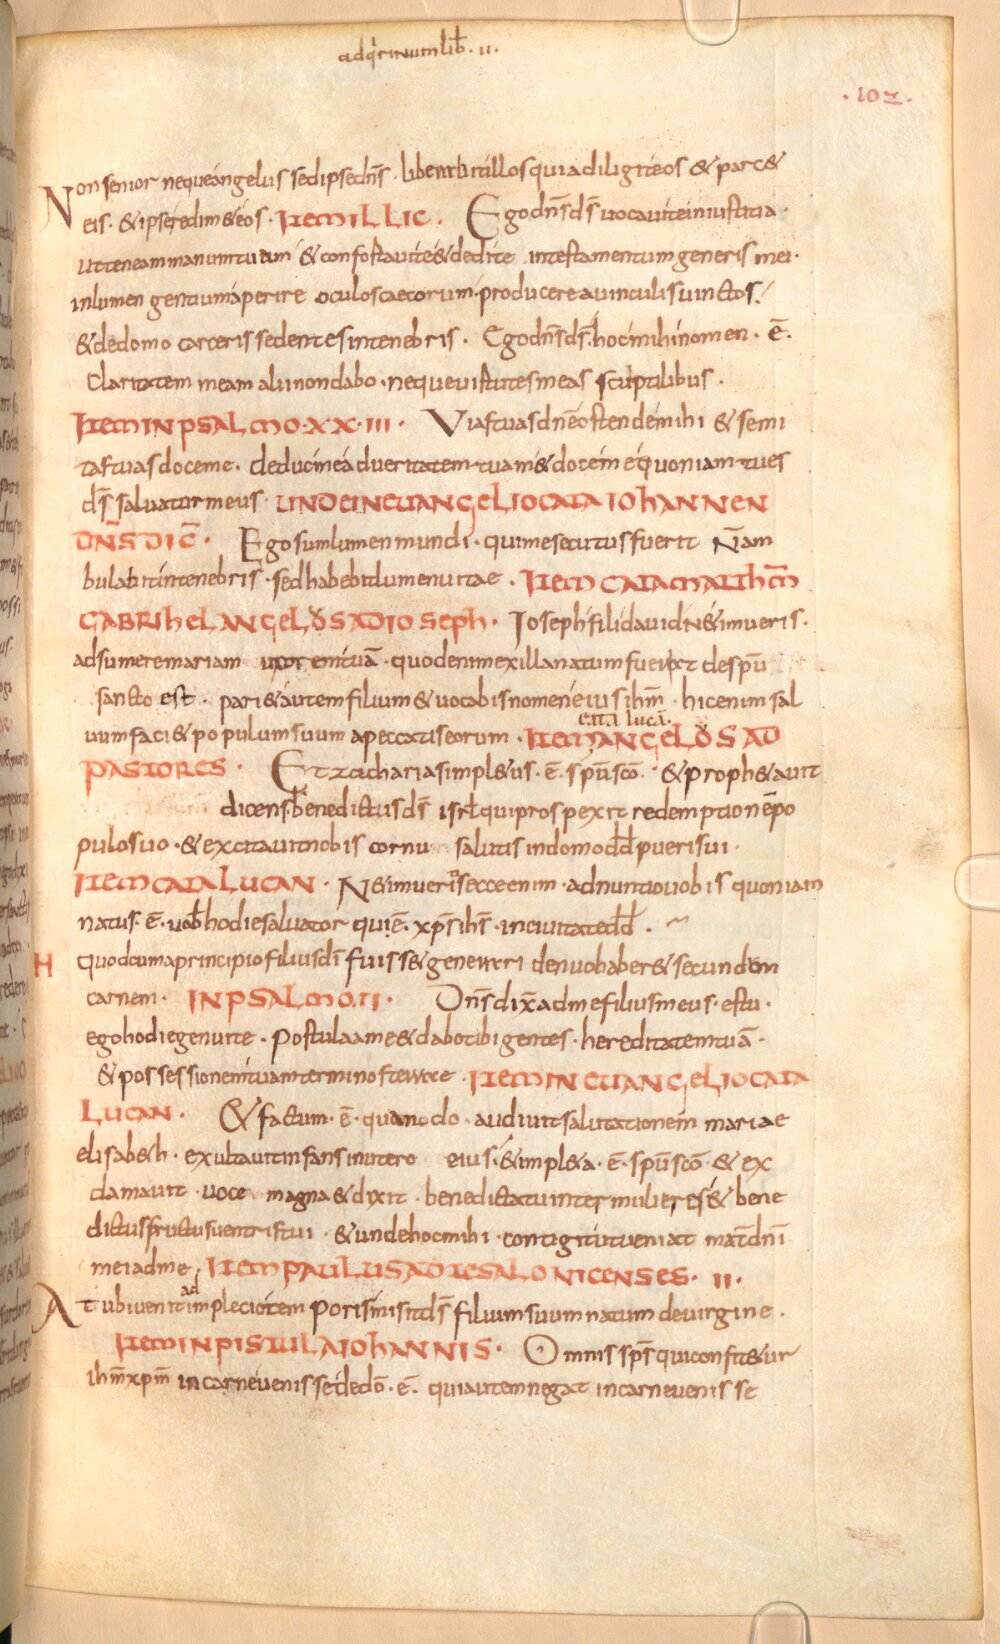 adq̇rinum lib̄ · ii ·
· 102 ·
Non senior neque angelus sed ipse dn̄s · liberabit illos quia diligit eos & parc&
eis · & ipse redim& eos · ITEM ILLIC · Ego dn̄s ds̄ vocavi te in iustitia ·
ut teneam manum tuam & confortavi te & dedi te in testamentum generis mei ·
in lumen gentium aperire oculos caecorum · producere a vinculis vinctos ·
& de domo carceris sedentes in tenebris · Ego dn̄s ds̄ hoc mihi nomen · ē ·
Claritatem meam alii non dabo · neque virtutes meas sculptilibus ·
ITEM IN PSALMO · XX · III · Vias tuas dn̄e ostende mihi & semi
tas tuas doce me · deduc me ad veritatem tuam & doce me quoniam tu es
ds̄ salvator meus · UNDE IN EUANGELIO CATA IOHANNEN
DN̄S DIC̄ · Ego sum lumen mundi · qui me secutus fuerit Nām
bulabit in tenebris · sed habebit lumen vitae · ITEM CATA MATTHM̄
GABRIHEL ANGELUS AD IOSEPH · Ioseph fili david Ne timveris ·
adsumere mariam uxorem tuā · quod enim ex illa natum fuerit de spū
sancto est · pari& autem filium & vocabis nomen eius ihm̄ · hic enim sal
vum faci& populum suum a peccatis eorum · ITEM ANGELUS AD
c̄tā lucā ·
PASTORES · Et zacharias impl&us · ē · spū scō · & proph&avit
dicens · benedictus ds̄ isrl̄ qui prospexit redemptionē po
pulo suo · & excitavit nobis cornu salutis in domo dd̄ pueri sui ·
ITEM CATA LUCAN · Ne timveritis ecce enim · adnuntio vobis quoniam
natus · ē · vob̄ hodie salvator qui ē · xps̄ ihs̄ · in civitate dd̄ ·
H quod cum a principio filius dī fuiss& generari denuo haber& secundum
carnem · IN PSALMO · II · Dn̄s dix̄ ad me filius meus · es tu ·
ego hodie genui te · Postula a me & dabo tibi gentes · hereditatem tuā ·
& possessionem tuam terminos terrae · ITEM IN EUANGELIO CATA
LUCAN · & factum · ē · quando · audivit salutationem mariae
elisab&h · exultavit infans in utero eius · & impl&a · ē · spū scō · & ex
clamavit · voce magna & dixit · benedicta tu inter mulieres & bene
dictus fructus ventris tui · & unde hoc mihi · contigit ut veniat mat̄ dn̄i
mei ad me · ITEM PAULUS AD TESALONICENSES · II ·
ad
At ubi venit impletio temporis misit ds̄ filium suum natum de virgine ·
ITEM IN PISTULA IOHANNIS · Omnis sps̄ qui confit&ur
ihm̄ xpm̄ in carne venisse de dō · ē · qui autem negat in carne venisse